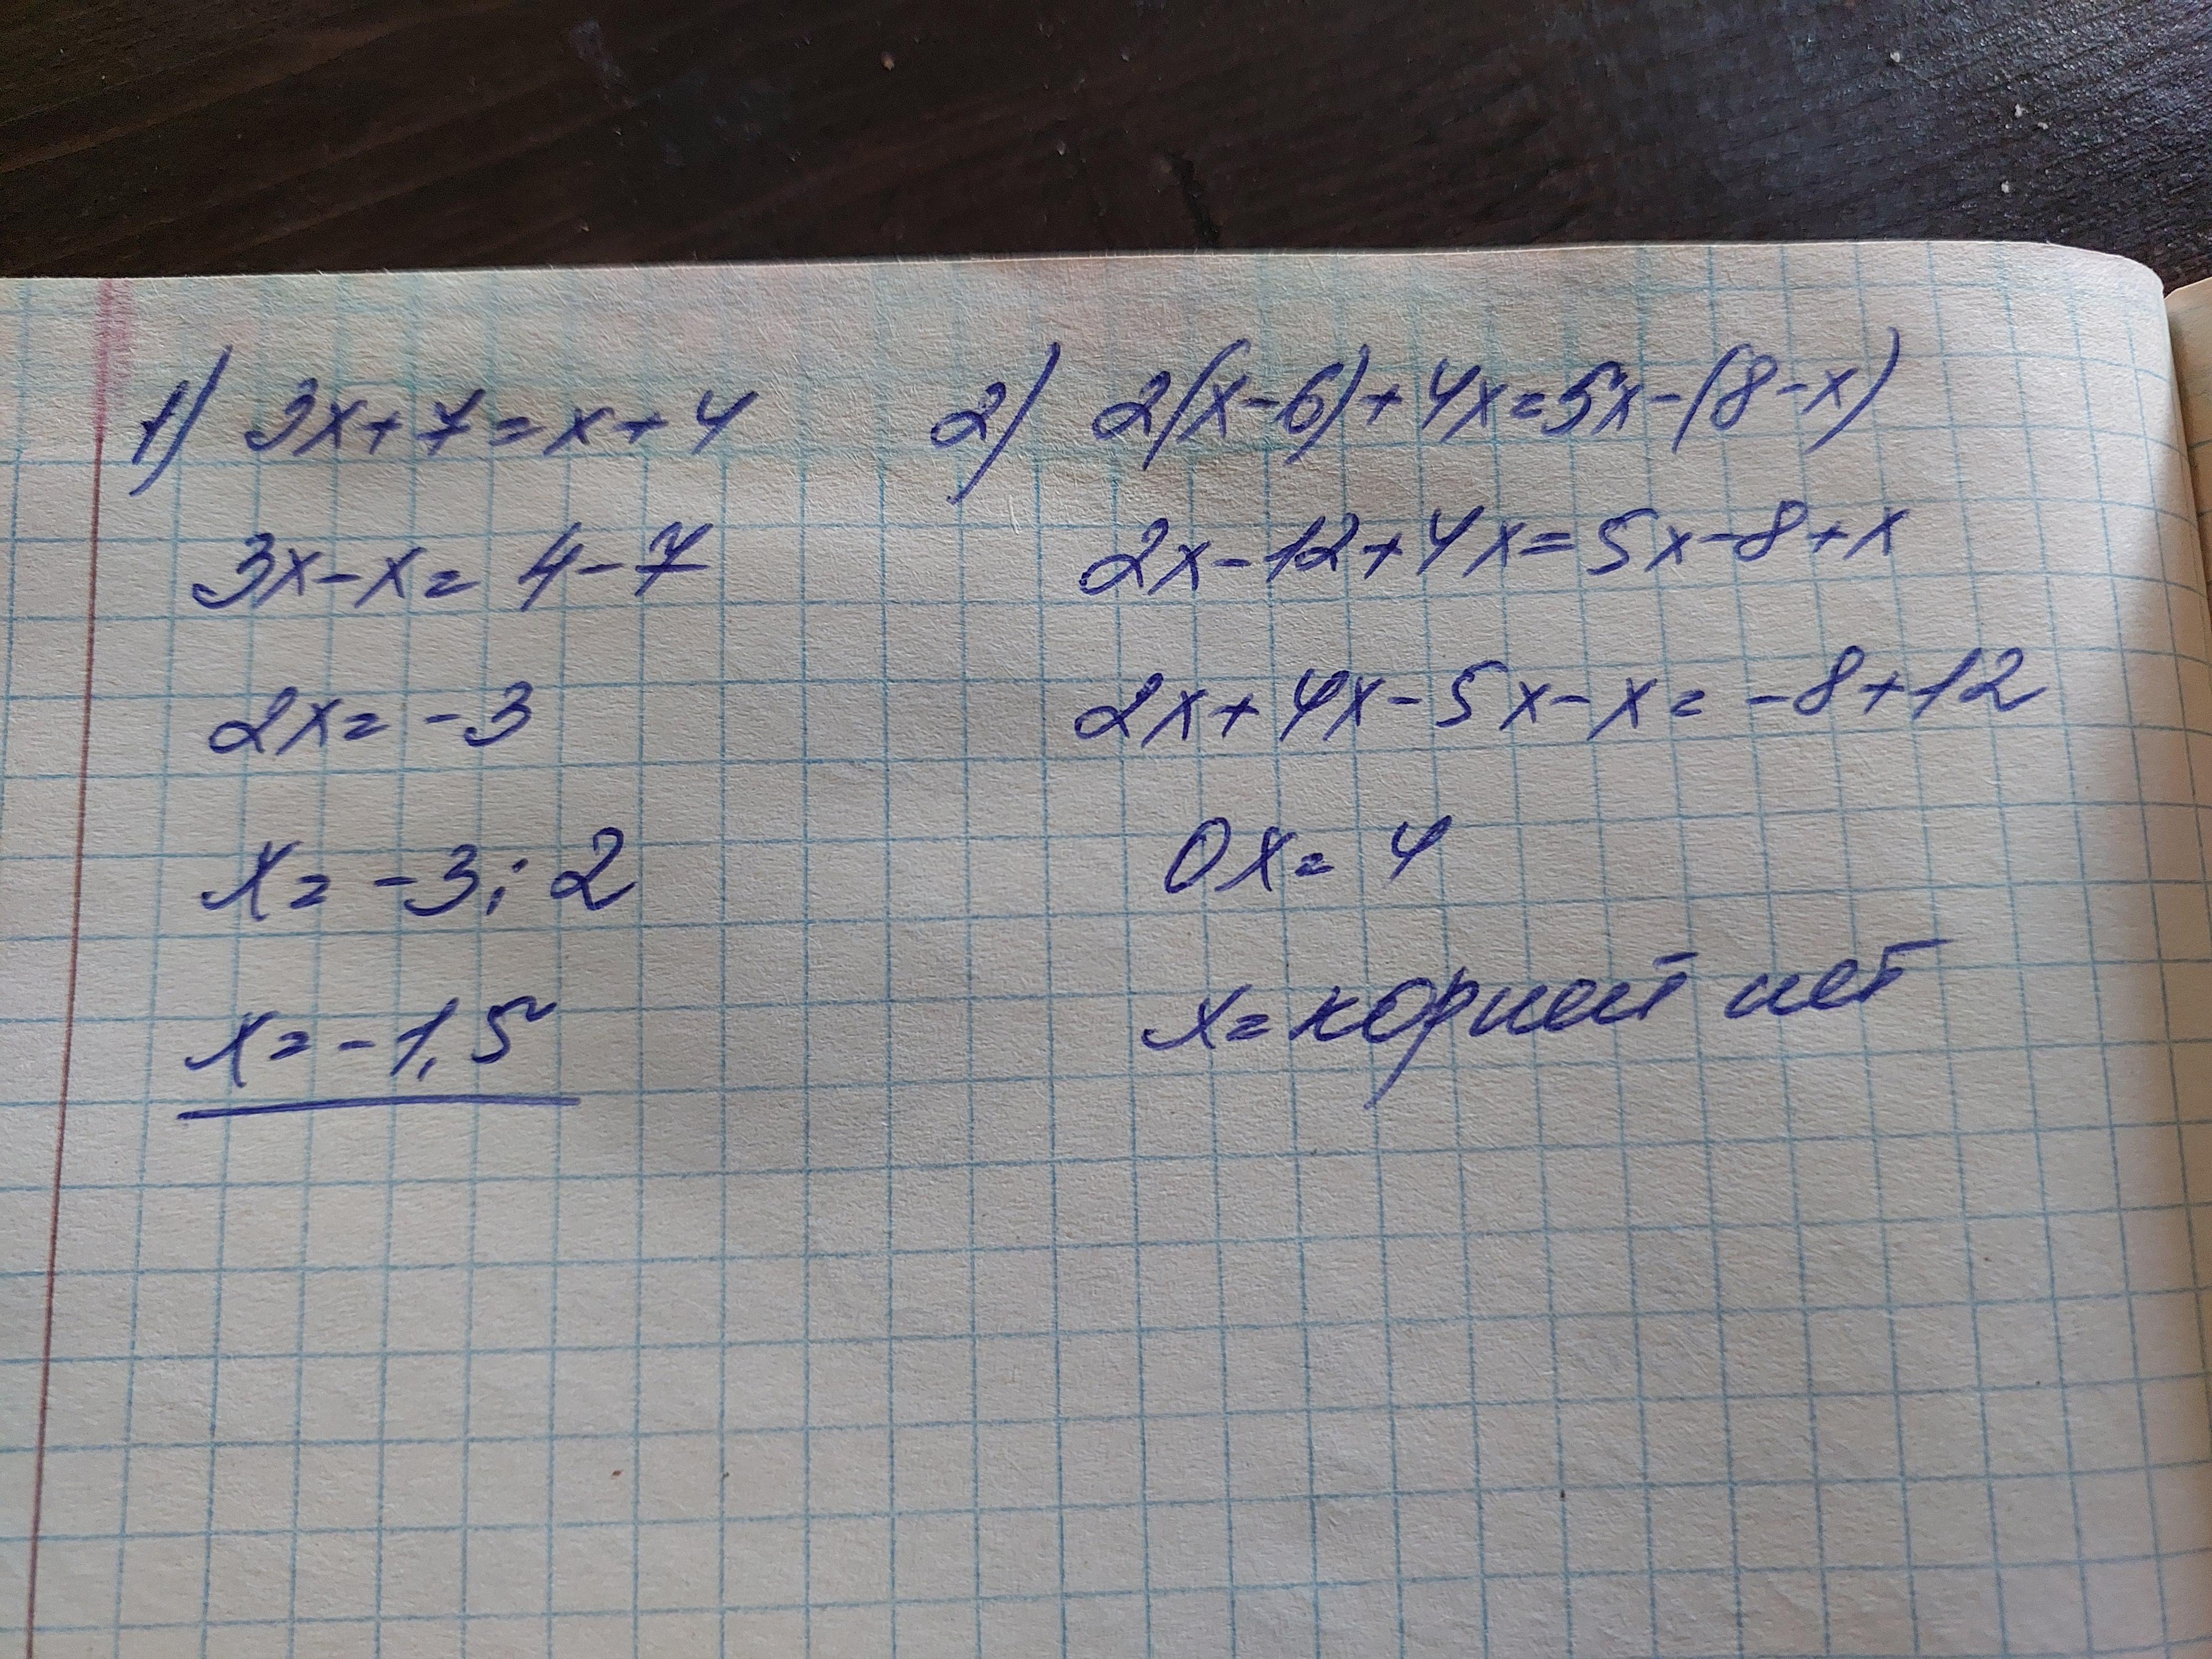 1) 3x+7=x+4
3x-x=4-7
2x=-3
x=-3:2
x=-1,5
2) 2(x-6)+4x=5x-(8-x)
2x-12+4x=5x-8+x
2x+4x-5x-x=-8+12
0x=4
x=корней нет